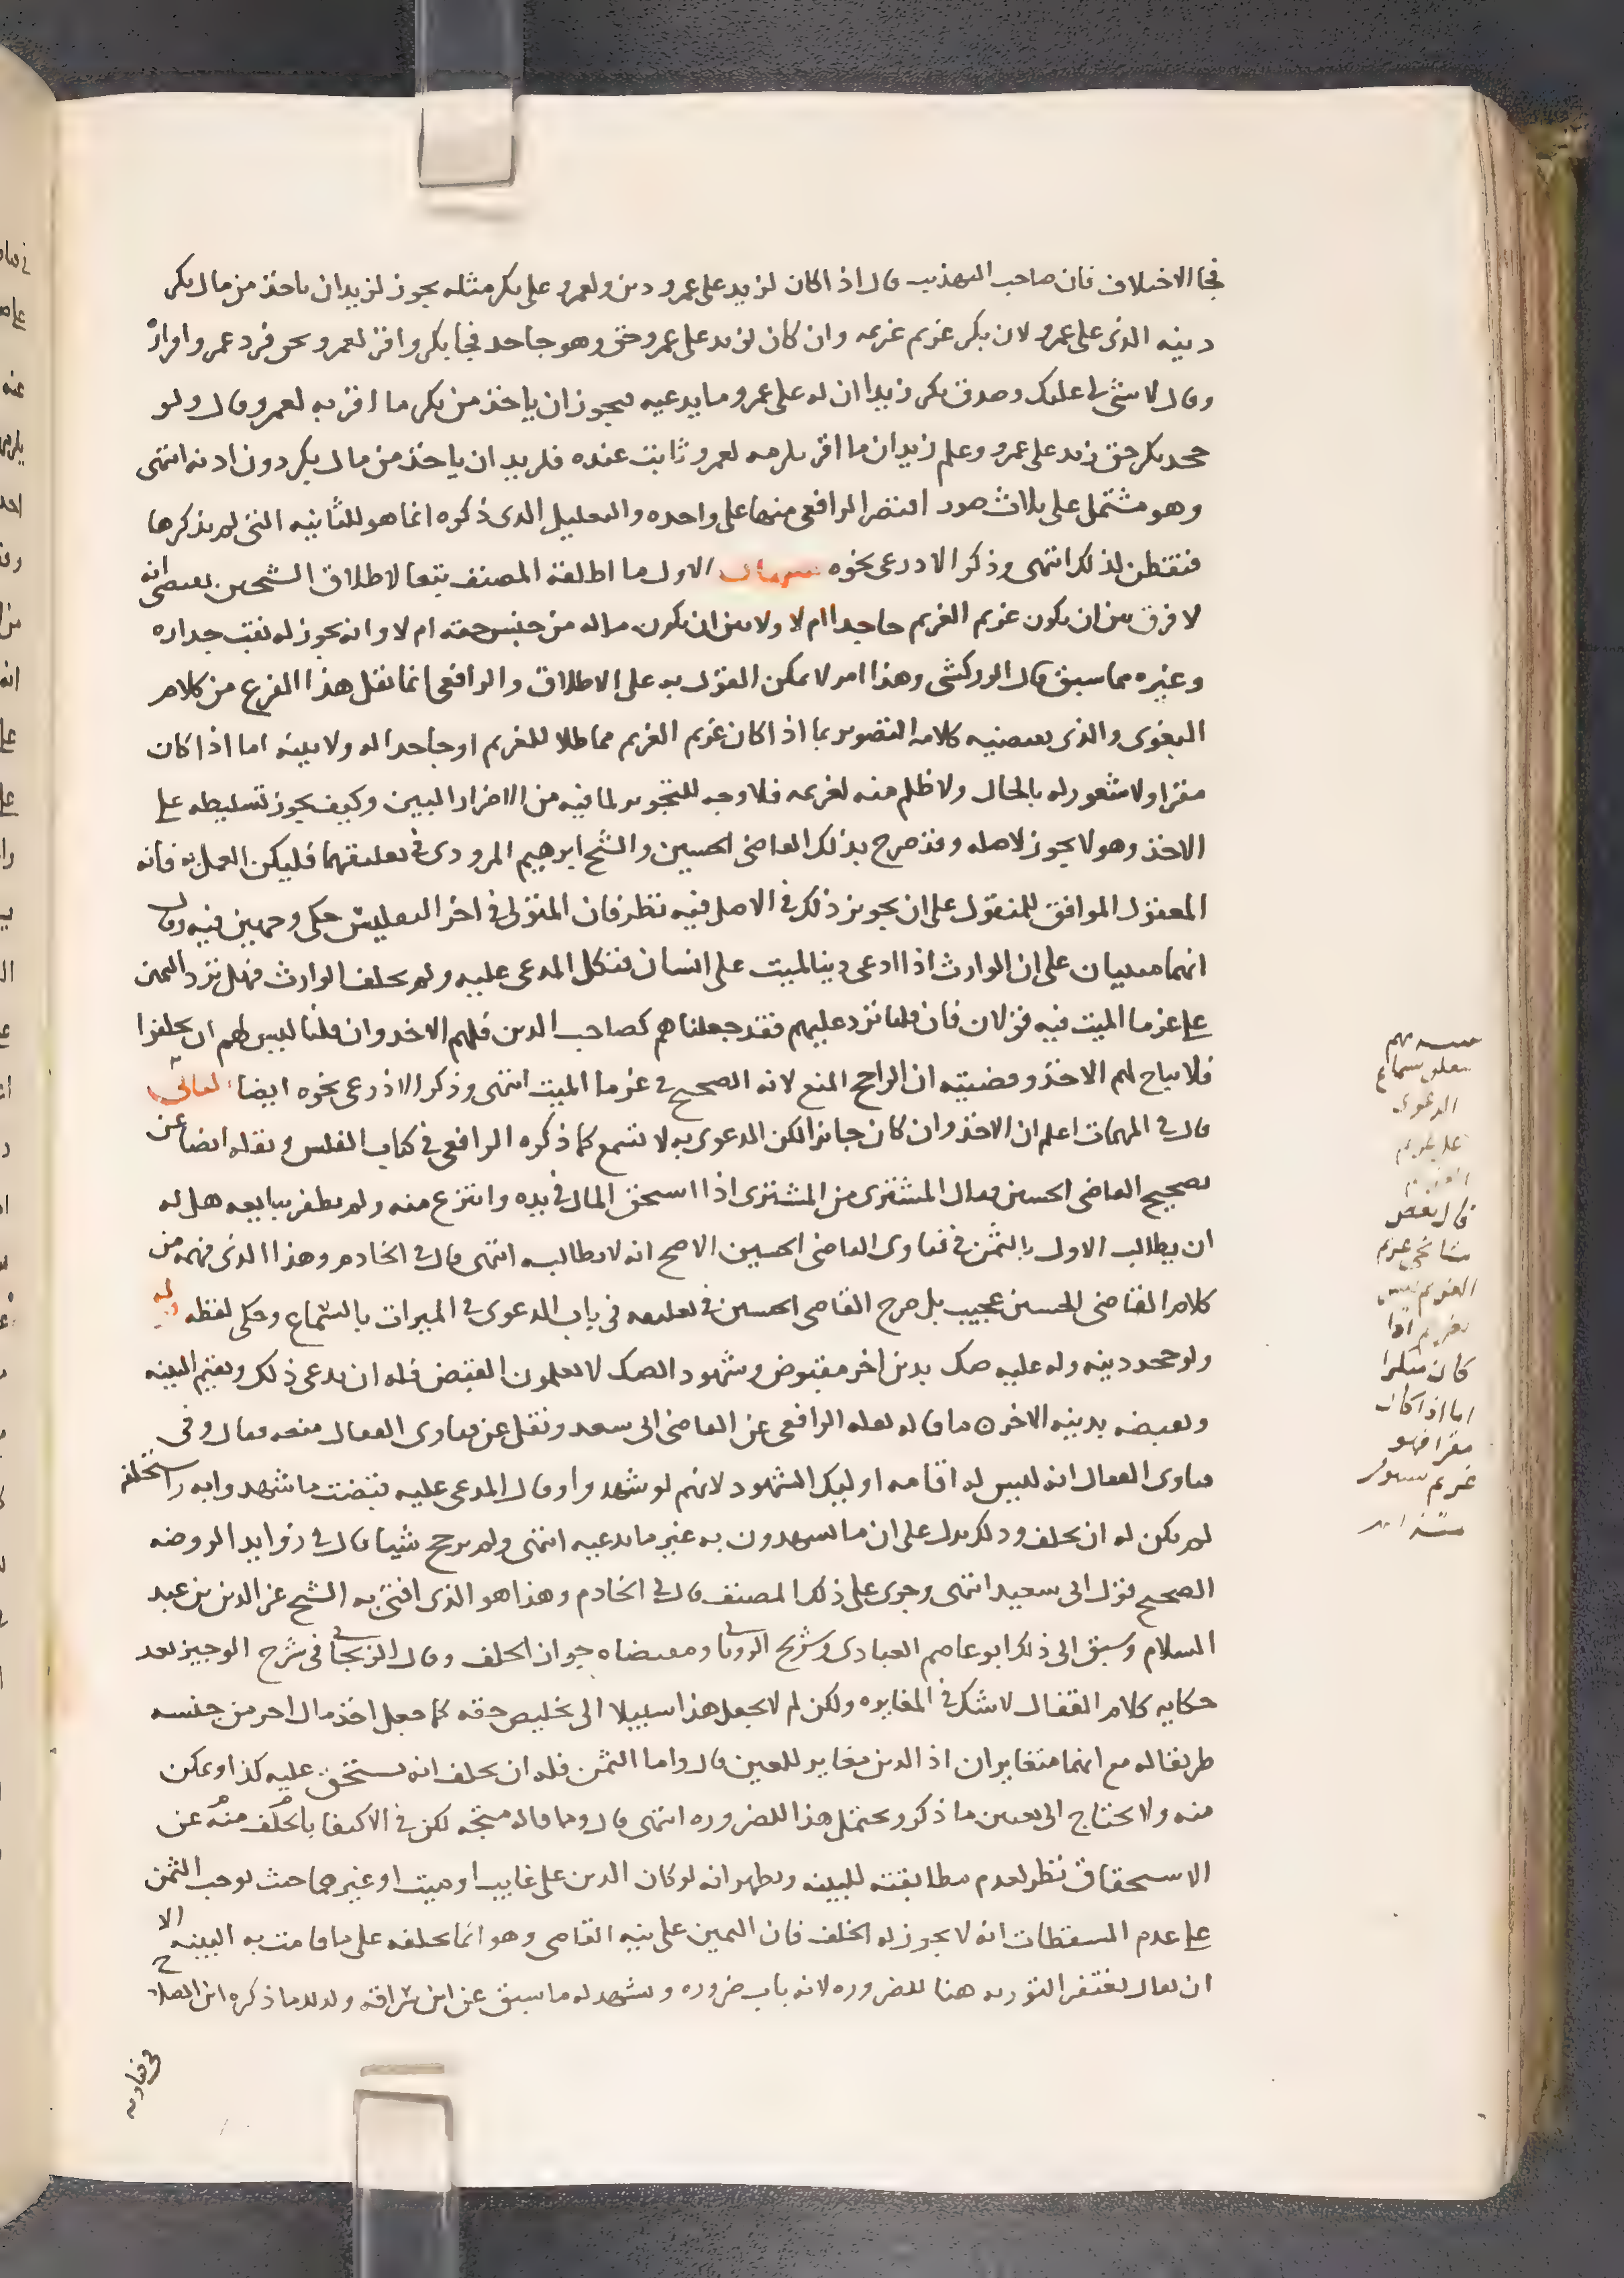 فجا الاختلاف فان صاحب التهذيب قال اذا كان لزيد على عمرو دين ولعمرو على بكر مثله يجوز لزيد ان ياخذ من مال بكر
دينه الذى على عمرو لان بكر غريم غريمه وان كان لزيد على عمرو حق وهو جاحد فجا بكر واقر لعمرو بحق فرد عمرو اقراره
وقال لا شى لى عليك وصدق بكر زيدا ان له على عمرو ما يدعيه يجوز ان ياخذ من بكر ما اقر به لعمرو قال ولو
جحد بكر حق زيد على عمرو وعلم زيد ان ما اقر بكر به لعمرو ثابت عنده فلزيد ان ياخذ من مال بكر دون اذنه انتهى
وهو مشتمل على ثلاث صور اقتصر الرافعى منها على واحده والتعليل الذى ذكره انما هو للثانيه التى لم يذكرها
فتفطن لذلك انتهى وذكر الاذرعى نحوه تنبيهات الاول ما اطلقه المصنف تبعا لاطلاق الشيخين يقتضى انه
لا فرق بين ان يكون غريم الغريم جاحدا ام لا ولا بين ان يكون ماله من جنس حقه ام لا وانه يجوز له نقب جداره
وغيره مما سبق قال الزركشى وهذا امر لا يمكن القول به على الاطلاق والرافعى انما نقل هذا الفرع من كلام
البغوى والذى يقتضيه كلامه التصوير بما اذا كان غريم الغريم مماطلا للغريم او جاحدا له ولا بينه اما اذا كان
مقرا ولا شعور له بالحال ولا ظلم منه لغريمه فلا وجه للتجويز لما فيه من الاضرار البين وكيف يجوز تسليطه على
الاخذ وهو لا يجوز لاصله وقد صرح بذلك القاضى الحسين والشيخ ابرهيم المرودى فى تعليقهما فليكن العمل به فانه
المعقول الموافق للمنقول على ان تجويز ذلك فى الاصل فيه نظر فان المتولى فى اخر التفليس حكى وجهين فيه وقال
انهما مبنيان على ان الوارث اذا ادعى دينا لميت على انسان فنكل المدعى عليه ولم يحلف الوارث فهل ترد اليمين
على غرما الميت فيه قولان فان قلنا ترد عليهم فقد جعلناهم كصاحب الدين فلهم الاخذ وان قلنا ليس لهم ان يحلفوا
فلا يباح لهم الاخذ وقضيته ان الراجح المنع لانه الصحيح فى غرما الميت انتهى وذكر الاذرعى نحوه ايضا الثانى
قال فى المهمات اعلم ان الاخذ وان كان جايزا لكن الدعوى به لا تسمع كما ذكره الرافعى فى كتاب الفلس ونقله ايضا عن
تصحيح القاضى الحسين فقال المشترى من المشترى اذا استحق المال فى يده وانتزع منه ولم يظفر ببايعه هل له
ان يطالب الاول بالثمن فى فتاوى القاضى الحسين الاصح انه لا يطالبه انتهى قال فى الخادم وهذا الذى فهمه من
كلام القاضى الحسين عجيب بل صرح القاضى الحسين فى تعليقه فى باب الدعوى فى الميراث بالسماع وحكى لفظه قوله
ولو جحد دينه وله عليه صك بدين اخر مقبوض وشهود الصك لا يعلمون القبض فله ان يدعى ذلك ويقيم البينه
ويقبضه بدينه الاخر ما قاله نقله الرافعى عن القاضى ابى سعد ونقل عن فتاوى القفال منعه فقال وفى
فتاوى القفال انه ليس له اقامه اوليك الشهود لانهم لو شهدوا وقال المدعى عليه قبضت ما شهدوا به واستحلفه
لم يكن له ان يحلف وذلك يدل على ان ما يشهدون به غير ما يدعيه انتهى ولم يرجح شيا قال فى زوايد الروضه
الصحيح قول ابى سعيد انتهى وجرى على ذلك المصنف قال فى الخادم وهذا هو الذى افتى به الشيخ عز الدين بن عبد
السلام وسبق الى ذلك ابو عاصم العبادى وشريح الرويانى ومقتضاه جواز الحلف وقال الزنجانى فى شرح الوجيز بعد
حكايه كلام القفال لا شك فى المغايره ولكن لم لا يجعل هذا سبيلا الى تخليص حقه كما جعل اخذ مال اخر من جنسه
طريقا له مع انهما متغايران اذ الدين مغاير للعين قال واما الثمن فله ان يحلف انه يستحق عليه كذا ويمكن
منه ولا يحتاج الى تعيين ما ذكر ويحتمل هذا للضروره انتهى قال وما قاله متجه لكن فى الاكتفا بالحلف منه عن
الاستحقاق نظر لعدم مطابقته للبينه ويظهر انه لو كان الدين على غايب او ميت او غيرهما حيث نوجب اليمين
على عدم المسقطات انه لا يجوز له الحلف فان اليمين على نيه القاضى وهو انما يحلفه على ما قامت به البينه الا
ان يقال يغتفر التوريه هنا للضروره لانه باب ضروره ويشهد له ما سبق عن ابن سراقه ما ذكره ابن الصلاح
فى فتاويه
الدعوى
قال بعض
كان منكرا
اما اذا كان
مقرا فهو